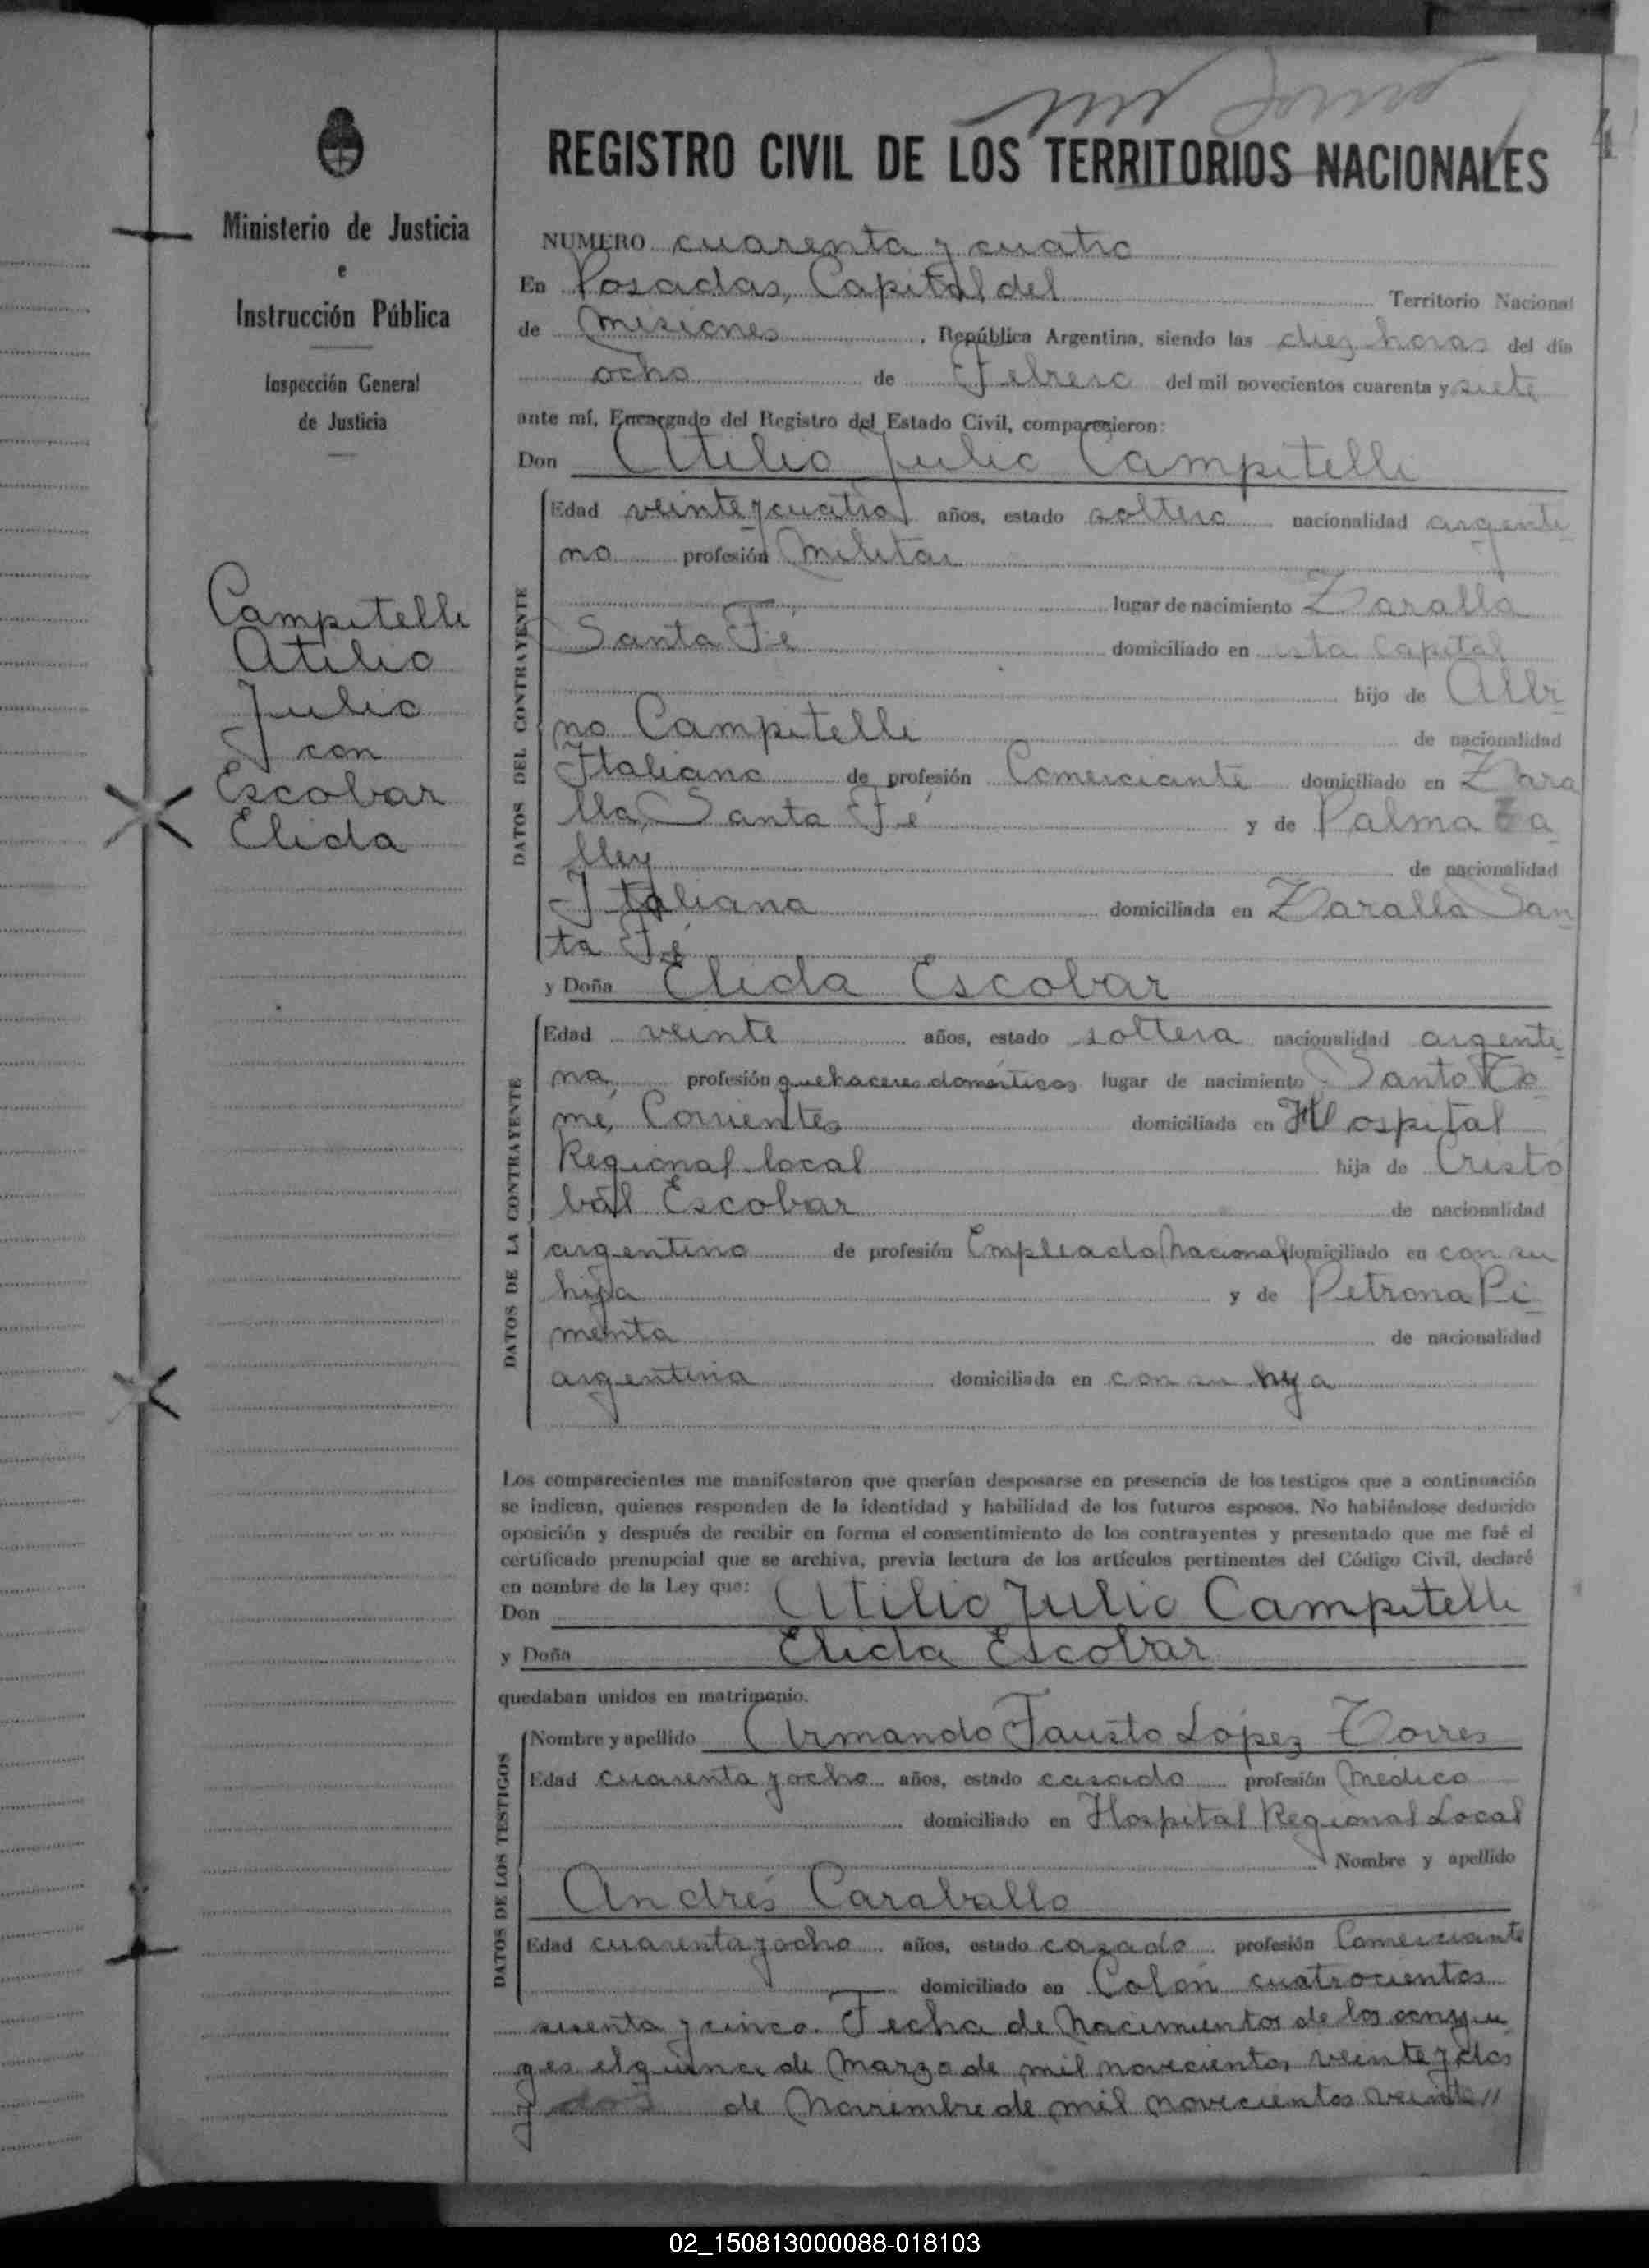 Ministerio de Justicia
e
Instrucción Pública
Inspección General
de Justicia
Campitelli
Atilio
Julio
con
Escobar
Elida
REGISTRO CIVIL DE LOS TERRITORIOS NACIONALES
NUMERO cuarenta y cuatro
En Posadas, Capital del Territorio Nacional
de Misiones, República Argentina, siendo las diez horas del día
ocho de Febrero del mil novecientos cuarenta y siete
ante mí, Encargado del Registro del Estado Civil, comparecieron:
Don Atilio Julio Campitelli
DATOS DEL CONTRAYENTE
Edad veinte y cuatro años, estado soltero nacionalidad argenti
no profesión Militar
lugar de nacimiento Zavalla
Santa Fé domiciliado en esta Capital
hijo de Albi
no Campitelli de nacionalidad
Italiano de profesión Comerciante domiciliado en Zava
lla, Santa Fé y de Palma
lley de nacionalidad
Italiana domiciliada en Zavalla San
ta Fé
y Doña Elida Escobar
DATOS DE LA CONTRAYENTE
Edad veinte años, estado soltera nacionalidad argenti
na profesión quehaceres domésticos lugar de nacimiento Santo To
mé, Corrientes domiciliada en Hospital
Regional local hija de Cristo
bál Escobar de nacionalidad
argentino de profesión Empleado Nacional domiciliado en con su
hija y de Petrona Pi
menta de nacionalidad
argentina domiciliada en con su hija
Los comparecientes me manifestaron que querían desposarse en presencia de los testigos que a continuación
se indican, quienes responden de la identidad y habilidad de los futuros esposos. No habiéndose deducido
oposición y después de recibir en forma el consentimiento de los contrayentes y presentado que me fué el
certificado prenupcial que se archiva, previa lectura de los artículos pertinentes del Código Civil, declaré
en nombre de la Ley que:
Don Atilio Julio Campitelli
y Doña Elida Escobar
quedaban unidos en matrimonio.
DATOS DE LOS TESTIGOS
Nombre y apellido Armando Fausto López Torres
Edad cuarenta y ocho años, estado casado profesión Médico
domiciliado en Hospital Regional Local
Nombre y apellido
Andrés Caraballo
Edad cuarenta y ocho años, estado casado profesión Comerciante
domiciliado en Colón cuatrocientos
sesenta y cinco. Fecha de Nacimientos de los conyu
ges el quince de Marzo de mil novecientos veinte y dos
y dos de Noviembre de mil novecientos veinte
02_150813000088-018103